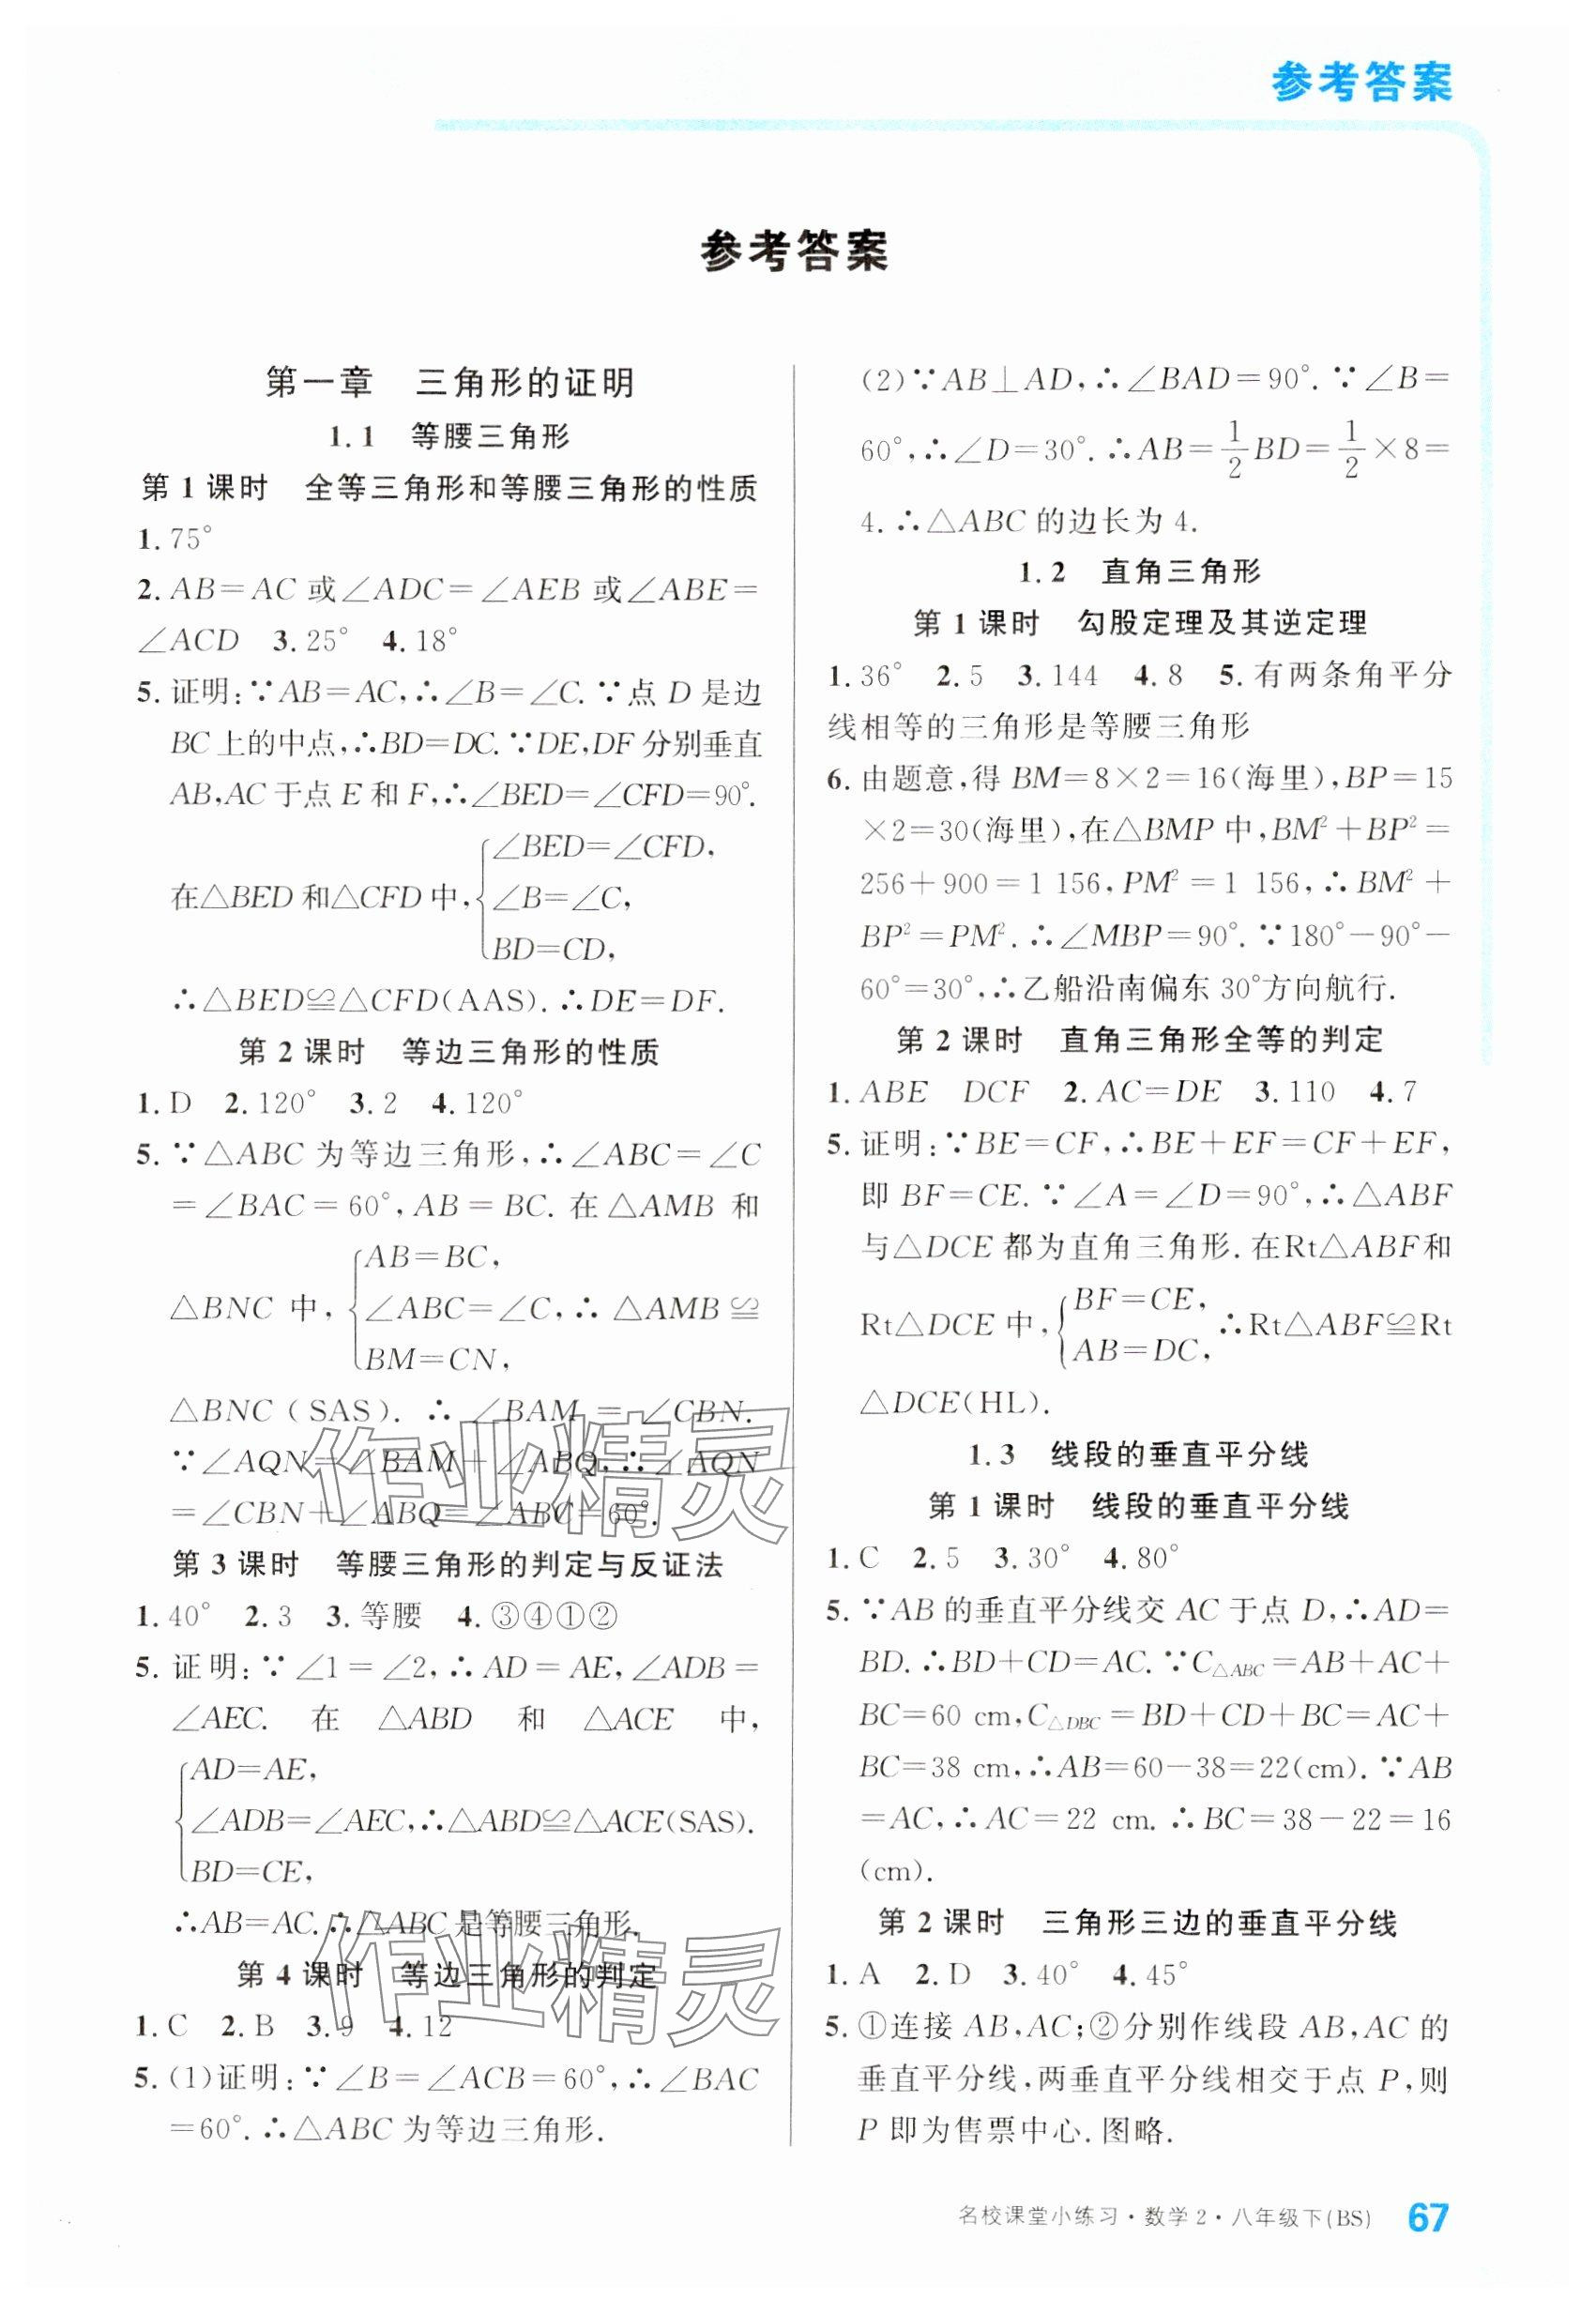 参考答案
参考答案
第一章 三角形的证明
1.1 等腰三角形
第1课时 全等三角形和等腰三角形的性质
1.75°
2.AB=AC或∠ADC=∠AEB或∠ABE=
∠ACD 3.25° 4.18°
5.证明:∵AB=AC,∴∠B=∠C.∵点D是边
BC上的中点,∴BD=DC.∵DE,DF分别垂直
AB,AC于点E和F,∴∠BED=∠CFD=90°.
在△BED和△CFD中,{∠BED=∠CFD,
∠B=∠C,
BD=CD,
∴△BED≌△CFD(AAS).∴DE=DF.
第2课时 等边三角形的性质
1.D 2.120° 3.2 4.120°
5.∵△ABC为等边三角形,∴∠ABC=∠C
=∠BAC=60°,AB=BC.在△AMB和
△BNC中,{AB=BC,
∠ABC=∠C,∴△AMB≌
BM=CN,
△BNC(SAS).∴∠BAM=∠CBN.
∵∠AQN=∠BAM+∠ABQ,∴∠AQN
=∠CBN+∠ABQ=∠ABC=60°.
第3课时 等腰三角形的判定与反证法
1.40° 2.3 3.等腰 4.③④①②
5.证明:∵∠1=∠2,∴AD=AE,∠ADB=
∠AEC.在△ABD和△ACE中,
{AD=AE,
∠ADB=∠AEC,∴△ABD≌△ACE(SAS).
BD=CE,
∴AB=AC.∴△ABC是等腰三角形.
第4课时 等边三角形的判定
1.C 2.B 3.9 4.12
5.(1)证明:∵∠B=∠ACB=60°,∴∠BAC
=60°.∴△ABC为等边三角形.
(2)∵AB⊥AD,∴∠BAD=90°.∵∠B=
60°,∴∠D=30°.∴AB=1/2BD=1/2×8=
4.∴△ABC的边长为4.
1.2 直角三角形
第1课时 勾股定理及其逆定理
1.36° 2.5 3.144 4.8 5.有两条角平分
线相等的三角形是等腰三角形
6.由题意,得BM=8×2=16(海里),BP=15
×2=30(海里),在△BMP中,BM²+BP²=
256+900=1 156,PM²=1 156,∴BM²+
BP²=PM².∴∠MBP=90°.∵180°-90°-
60°=30°,∴乙船沿南偏东30°方向航行.
第2课时 直角三角形全等的判定
1.ABE DCF 2.AC=DE 3.110 4.7
5.证明:∵BE=CF,∴BE+EF=CF+EF,
即BF=CE.∵∠A=∠D=90°,∴△ABF
与△DCE都为直角三角形.在Rt△ABF和
Rt△DCE中,{BF=CE,
AB=DC,∴Rt△ABF≌Rt
△DCE(HL).
1.3 线段的垂直平分线
第1课时 线段的垂直平分线
1.C 2.5 3.30° 4.80°
5.∵AB的垂直平分线交AC于点D,∴AD=
BD.∴BD+CD=AC.∵C△ABC=AB+AC+
BC=60 cm,C△DBC=BD+CD+BC=AC+
BC=38 cm,∴AB=60-38=22(cm).∵AB
=AC,∴AC=22 cm.∴BC=38-22=16
(cm).
第2课时 三角形三边的垂直平分线
1.A 2.D 3.40° 4.45°
5.①连接AB,AC;②分别作线段AB,AC的
垂直平分线,两垂直平分线相交于点P,则
P即为售票中心.图略.
作业精灵
作业精灵
名校课堂小练习·数学2·八年级下(BS) 67